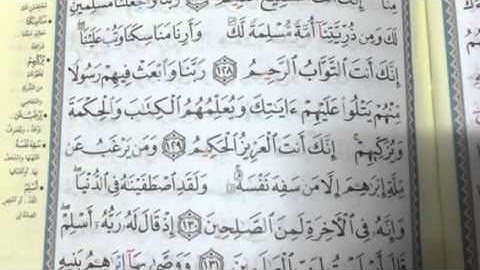 مِنَّا إِنَّكَ أَنتَ السَّمِيعُ الْعَلِيمُ رَبَّنَا وَاجْعَلْنَا مُسْلِمَيْنِ
لَكَ وَمِن ذُرِّيَّتِنَا أُمَّةً مُّسْلِمَةً لَّكَ وَأَرِنَا مَنَاسِكَنَا وَتُبْ عَلَيْنَا
إِنَّكَ أَنتَ التَّوَّابُ الرَّحِيمُ ١٢٨ رَبَّنَا وَابْعَثْ فِيهِمْ رَسُولًا
مِّنْهُمْ يَتْلُوا عَلَيْهِمْ ءَايَٰتِكَ وَيُعَلِّمُهُمُ الْكِتَٰبَ وَالْحِكْمَةَ
وَيُزَكِّيهِمْ إِنَّكَ أَنتَ الْعَزِيزُ الْحَكِيمُ ١٢٩ وَمَن يَرْغَبُ عَن
مِّلَّةِ إِبْرَٰهِمَ إِلَّا مَن سَفِهَ نَفْسَهُ وَلَقَدِ اصْطَفَيْنَٰهُ فِي الدُّنْيَا
وَإِنَّهُ فِي الْآخِرَةِ لَمِنَ الصَّٰلِحِينَ ١٣٠ إِذْ قَالَ لَهُ رَبُّهُ أَسْلِمْ
قَالَ أَسْلَمْتُ لِرَبِّ الْعَٰلَمِينَ ١٣١ وَوَصَّىٰ بِهَا إِبْرَٰهِمُ بَنِيهِ